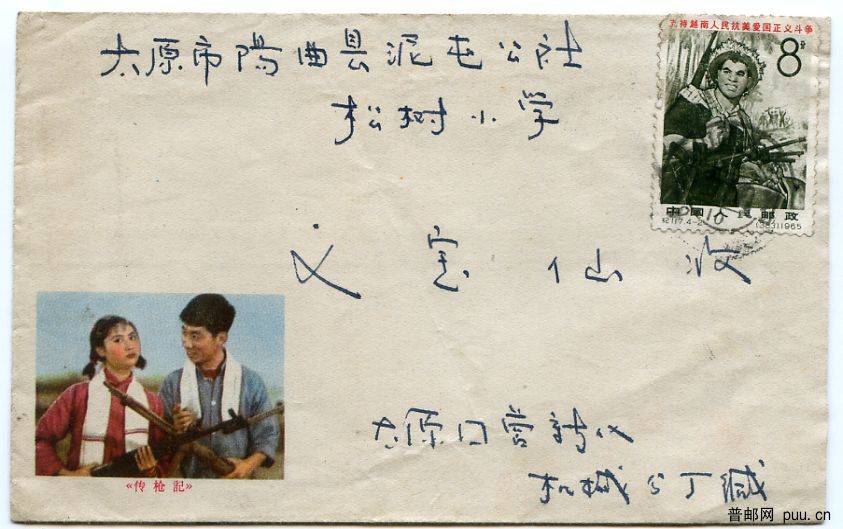 支持越南人民抗美爱国正义斗争
8分
太原市陽曲县泥屯公社
松树小学
中国人民邮政
纪117.4-2 (383)1965
仙 收
太原
机械 缄
《传枪记》
普邮网 puu.cn